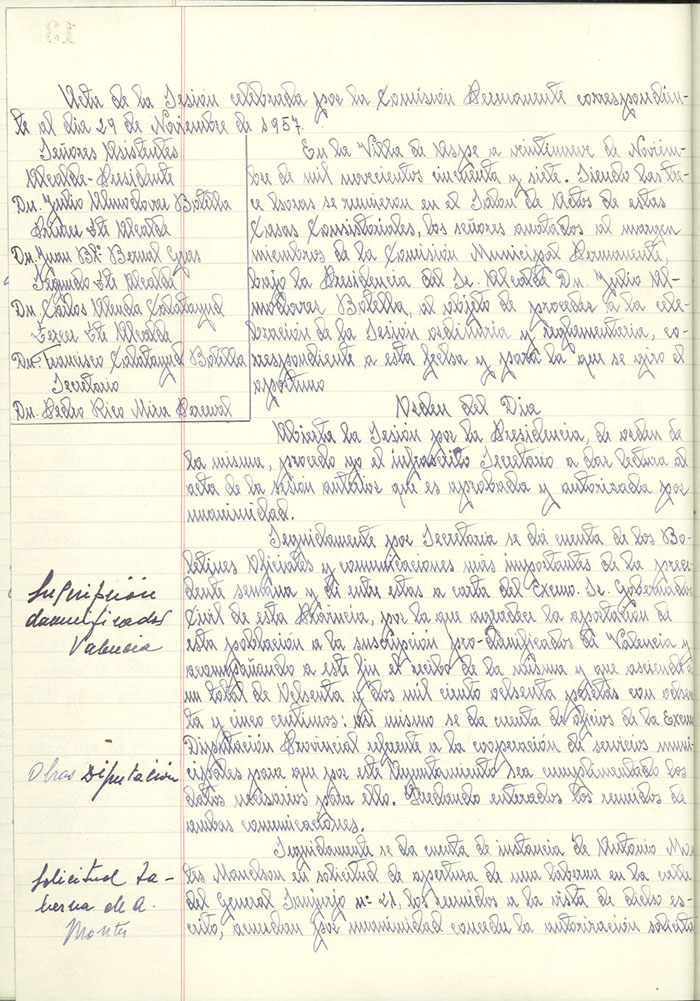 Acta de la Sesión celebrada por la Comisión Permanente correspondien-
te al dia 29 de Noviembre de 1957.
Señores Asistentes
Alcalde-Presidente
Dn. Julio Almodovar Botella
Primer Tte Alcalde
Dn. Juan Btª Bernal
Segundo Tte Alcalde
Dn. Carlos Alenda Calatayud
Tercer Tte Alcalde
Dn. Francisco Calatayud Botella
Secretario
Dn. Pedro Rico Mira Perceval
En la Villa de Aspe a veintinueve de Noviem-
bre de mil novecientos cincuenta y siete. Siendo las tre-
ce horas se reunieron en el Salon de Actos de estas
Casas Consistoriales, los señores anotados al margen
miembros de la Comisión Municipal Permanente,
bajo la Presidencia del Sr. Alcalde Dn. Julio Al-
modovar Botella, al objeto de proceder a la cele-
bración de la Sesión ordinaria y reglamentaria, co-
rrespondiente a esta fecha y para la que se giro el
oportuno
Orden del Dia
Abierta la Sesión por la Presidencia, de orden de
la misma, procedo yo el infrascrito Secretario a dar lectura al
acta de la sesión anterior que es aprobada y autorizada por
unanimidad.
Suscripción
damnificados
Valencia
Seguidamente por Secretaria se dá cuenta de los Bo-
letines Oficiales y comunicaciones más importantes de la prece-
dente semana y de entre estas a carta del Excmo. Sr. Gobernador
Civil de esta Provincia, por la que agradece la aportación de
esta población a la suscripción pro-damnificados de Valencia y
acompañando a este fin el recibo de la misma y que asciende
un total de Ochenta y dos mil ciento ochenta pesetas con
ta y cinco centimos: asi mismo se da cuenta de oficios de la Excma
Obras Diputación
Diputación Provincial referente a la cooperación de servicios muni-
cipales para que por este Ayuntamiento sea cumplimentado los
datos necesarios para ello. Quedando enterados los reunidos de
ambas comunicaciones.
Solicitud Ta-
berna de A.
Montes
Seguidamente se da cuenta de instancia de Antonio Mon-
tes en solicitud de apertura de una taberna en la calle
del General Sanjurjo nº 21, los reunidos a la vista de dicho es-
crito, acuerdan por unanimidad conceder la autorización solicita